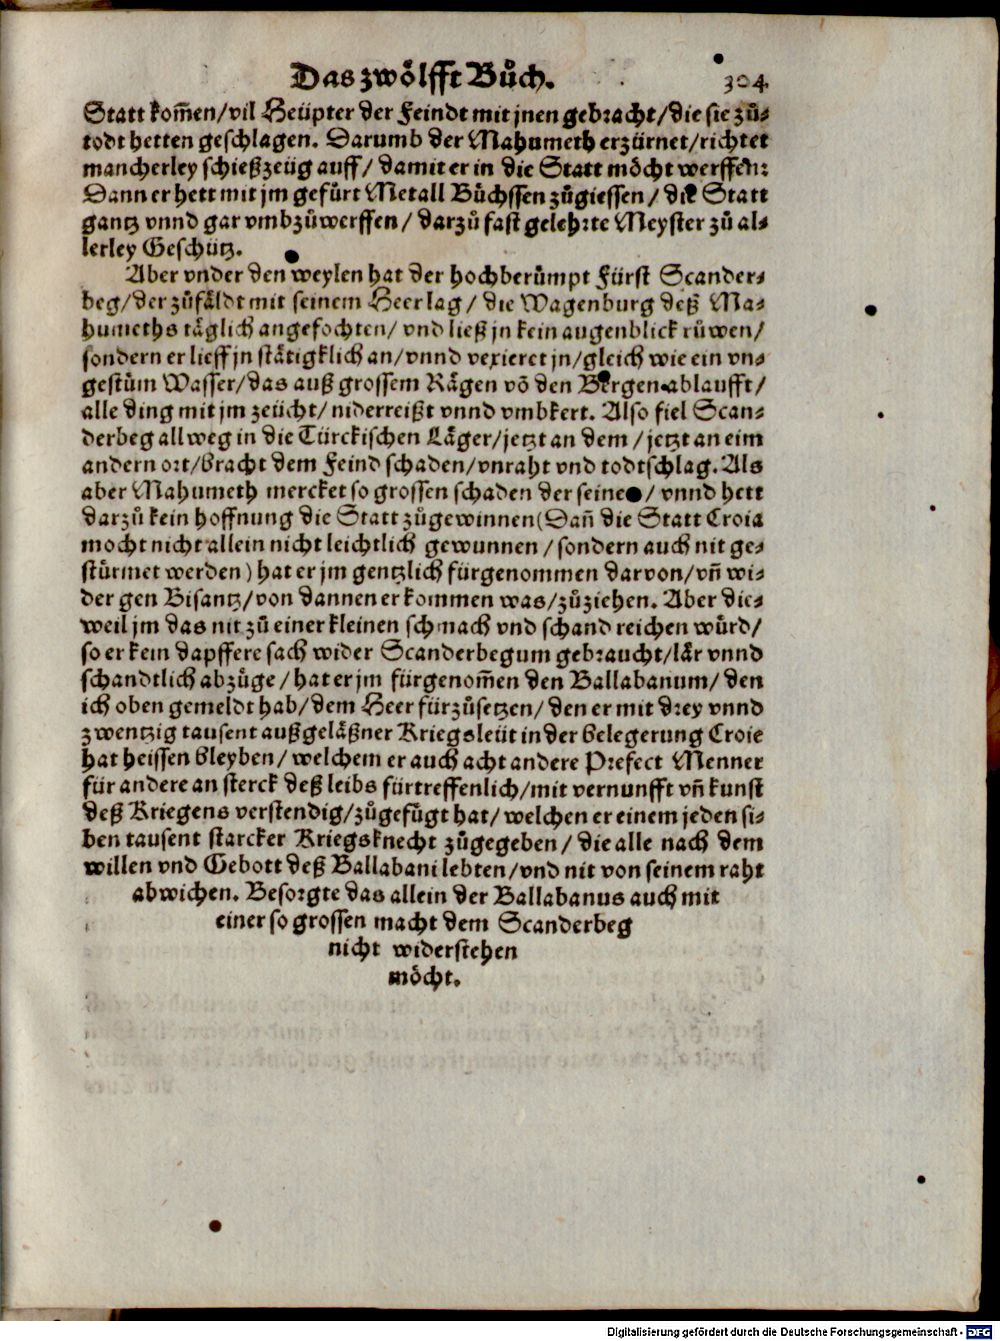 Das zwölfft Bůch. 304.
Statt kom̄en/vil Heüpter der Feindt mit jnen gebracht/die sie zů-
todt hetten geschlagen. Darumb der Mahumeth erzürnet/richtet
mancherley schießzeüg auff/ damit er in die Statt möcht werffen:
Dann er hett mit jm gefürt Metall Büchssen zůgiessen / die Statt
gantz vnnd gar vmbzůwerffen / darzů fast gelehrte Meyster zů al-
lerley Geschütz.
Aber vnder den weylen hat der hochberůmpt Fürst Scander-
beg/der zůfäldt mit seinem Heer lag / die Wagenburg deß Ma-
humeths täglich angefochten/ vnd ließ jn kein augenblick růwen/
sondern er lieff jn stätigklich an/vnnd vexieret jn/gleich wie ein vn-
gestům Wasser/das auß grossem Rägen võ den Bergen ablaufft/
alle ding mit jm zeücht/ niderreißt vnnd vmbkert. Also fiel Scan-
derbeg allweg in die Türckischen Läger/jetzt an dem / jetzt an eim
andern ort/bracht dem Feind schaden/vnraht vnd todtschlag. Als
aber Mahumeth mercket so grossen schaden der seinen / vnnd hett
darzů kein hoffnung die Statt zůgewinnen (Dañ die Statt Croia
mocht nicht allein nicht leichtlich gewunnen / sondern auch nit ge-
stürmet werden) hat er jm gentzlich fürgenommen darvon/ vñ wi-
der gen Bisantz/von dannen er kommen was/zůziehen. Aber die-
weil jm das nit zů einer kleinen schmach vnd schand reichen würd/
so er kein dapffere sach wider Scanderbegum gebraucht/lär vnnd
schandtlich abzüge / hat er jm fürgenom̄en den Ballabanum/ den
ich oben gemeldt hab/dem Heer fürzůsetzen/ den er mit drey vnnd
zwentzig tausent außgeläßner Kriegsleüt in der belegerung Croie
hat heissen bleyben/ welchem er auch acht andere Prefect Menner
für andere an sterck deß leibs fürtreffenlich/mit vernunfft vñ kunst
deß Kriegens verstendig/zůgefügt hat/welchen er einem jeden si-
ben tausent starcker Kriegsknecht zůgegeben / die alle nach dem
willen vnd Gebott deß Ballabani lebten/vnd nit von seinem raht
abwichen. Besorgte das allein der Ballabanus auch mit
einer so grossen macht dem Scanderbeg
nicht widerstehen
möcht.
Digitalisierung gefördert durch die Deutsche Forschungsgemeinschaft - DFG